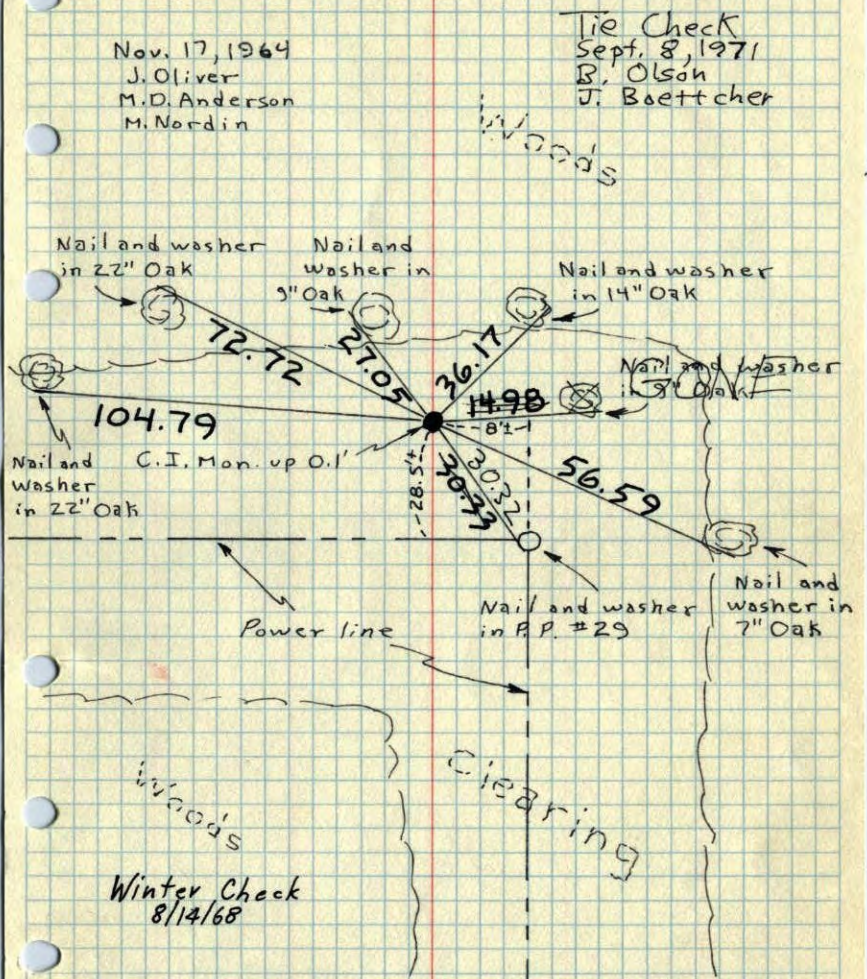 Nov. 17, 1964
J. Oliver
M.D. Anderson
M. Nordin
Tie Check
Sept. 8, 1971
B. Olson
J. Boettcher
Woods
Nail and washer
in 22" Oak
Nail and
washer in
9" Oak
Nail and washer
in 14" Oak
72.72
27.05
36.17
14.98
8'±
Nail and washer
in 9" Oak
GONE
104.79
Nail and
washer
in 22" Oak
C.I. Mon. up 0.1'
28.5'±
30.32
30.33
56.59
Nail and
washer in
7" Oak
Nail and washer
in P.P. #29
Power line
Woods
Clearing
Winter Check
8/14/68